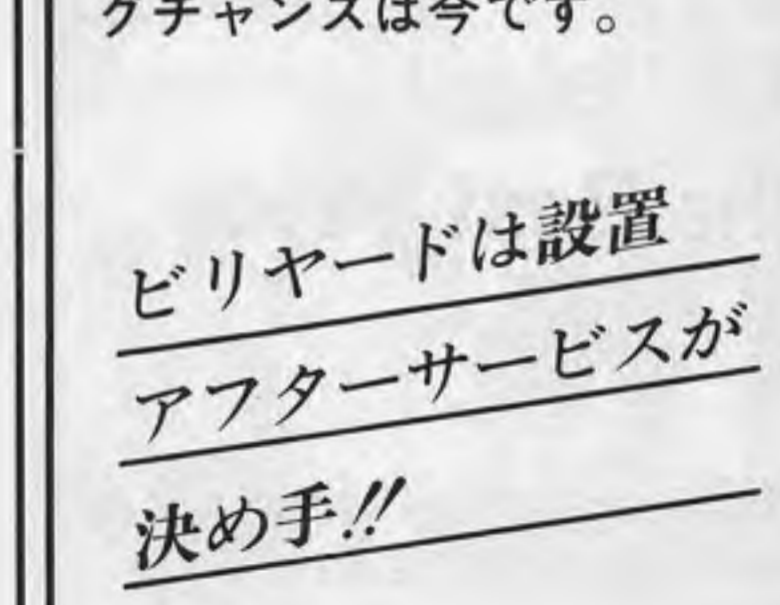 クチャンスは今です。
ビリヤードは設置
アフターサービスが
決め手!!